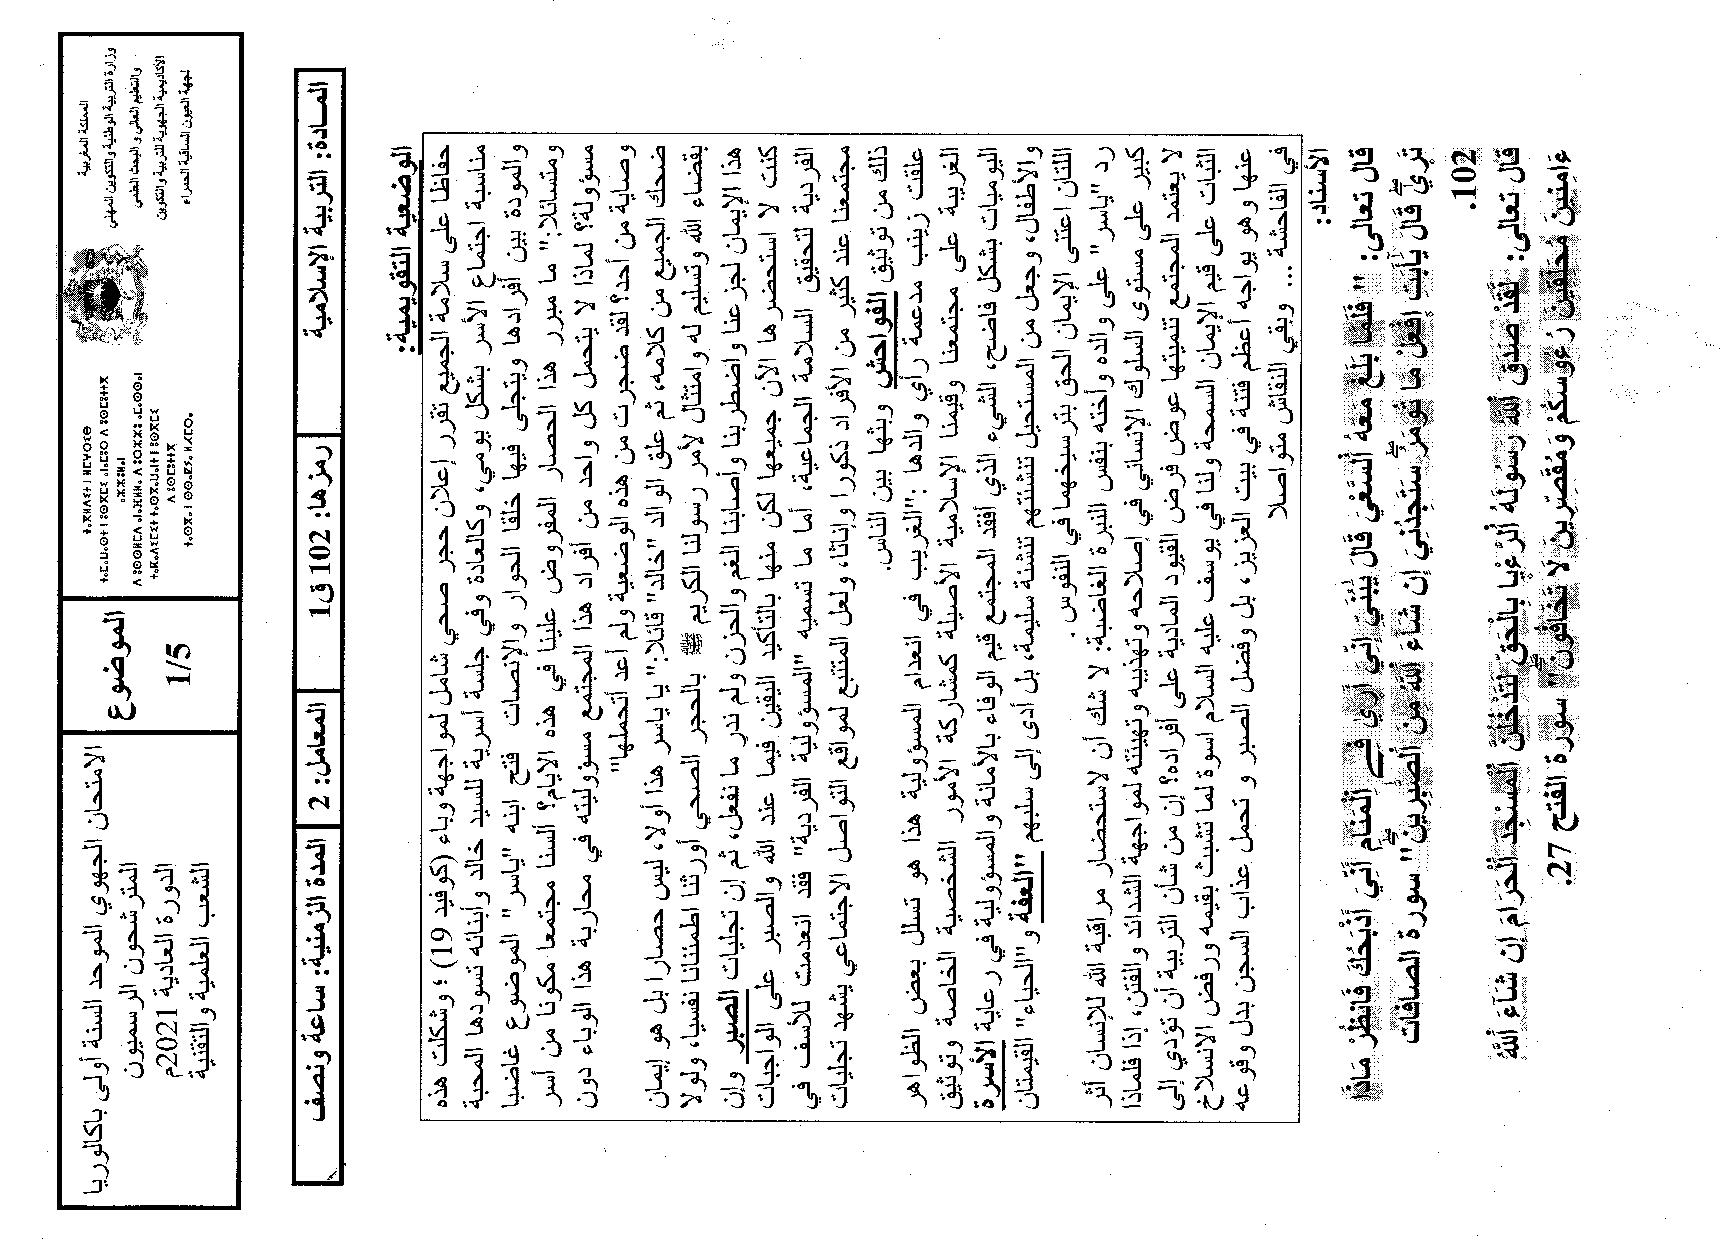 المملكة المغربية
وزارة التربية الوطنية والتكوين المهني
والتعليم العالي والبحث العلمي
الأكاديمية الجهوية للتربية والتكوين
لجهة العيون الساقية الحمراء
الموضوع
1/5
الامتحان الجهوي الموحد السنة أولى باكالوريا
المترشحون الرسميون
الدورة العادية 2021م
الشعب العلمية والتقنية
المـادة: التربية الإسلامية
رمزها: 102 ق1
المعامل: 2
المدة الزمنية: ساعة ونصف
الوضعية التقويمية:
حفاظا على سلامة الجميع تقرر إعلان حجر صحي شامل لمواجهة وباء (كوفيد 19) ؛ وشكلت هذه
مناسبة اجتماع الأسر بشكل يومي، وكالعادة وفي جلسة أسرية للسيد خالد وأبنائه تسودها المحبة
والمودة بين أفرادها ويتجلى فيها خلقا الحوار والإنصات فتح ابنه "ياسر" الموضوع غاضبا
ومتسائلا:" ما مبرر هذا الحصار المفروض علينا في هذه الأيام؟ ألسنا مجتمعا مكونا من أسر
مسؤولة؟ لماذا لا يتحمل كل واحد من أفراد هذا المجتمع مسؤوليته في محاربة هذا الوباء دون
وصاية من أحد؟ لقد ضجرت من هذه الوضعية ولم أعد أتحملها"
ضحك الجميع من كلامه، ثم علق الوالد "خالد" قائلا:" يا ياسر هذا أولا، ليس حصارا بل هو إيمان
بقضاء الله وتسليم له وامتثال لأمر رسولنا الكريم ﷺ بالحجر الصحي أورثنا اطمئنانا نفسيا، ولولا
هذا الإيمان لجزعنا واضطربنا وأصابنا الغم والحزن ولم ندر ما نفعل، ثم إن تجليات الصبر وإن
كنت لا استحضرها الآن جميعها لكن منها بالتأكيد اليقين فيما عند الله والصبر على الواجبات
الفردية لتحقيق السلامة الجماعية، أما ما تسميه "المسؤولية الفردية" فقد انعدمت للأسف في
مجتمعنا عند كثير من الأفراد ذكورا وإناثا، ولعل المتتبع لمواقع التواصل الاجتماعي يشهد تجليات
ذلك من توثيق الفواحش وبثها بين الناس.
علقت زينب مدعمة رأي والدها :"الغريب في انعدام المسؤولية هذا هو تسلل بعض الظواهر
الغريبة على مجتمعنا وقيمنا الإسلامية الأصيلة كمشاركة الأمور الشخصية الخاصة وتوثيق
اليوميات بشكل فاضح، الشيء الذي أفقد المجتمع قيم الوفاء بالأمانة والمسؤولية في رعاية الأسرة
والأطفال، وجعل من المستحيل تنشئتهم تنشئة سليمة، بل أدى إلى سلبهم "العفة و"الحياء" القيمتان
اللتان اعتنى الإيمان الحق بترسيخهما في النفوس .
رد "ياسر" على والده وأخته بنفس النبرة الغاضبة: لا شك أن لاستحضار مراقبة الله للإنسان أثر
كبير على مستوى السلوك الإنساني في إصلاحه وتهذيبه وتهيئته لمواجهة الشدائد والفتن، إذا فلماذا
لا يعتمد المجتمع تنميتها عوض فرض القيود المادية على أفراده؟ إن من شأن التربية أن تؤدي إلى
الثبات على قيم الإيمان السمحة ولنا في يوسف عليه السلام اسوة لما تشبث بقيمه ورفض الانسلاخ
عنها وهو يواجه أعظم فتنة في بيت العزيز، بل وفضل الصبر و تحمل عذاب السجن بدل وقوعه
في الفاحشة ... وبقي النقاش متواصلا
الأسناد:
قال تعالى: "فَلَمَّا بَلَغَ مَعَهُ اُلسَّعْيَ قَالَ يَٰبُنَيِّ إِنِّيَ أَر۪يٰ فِے اِ۬لْمَنَامِ أَنِّيَ أَذْبَحُكَ فَانظُرْ مَاذَا
تَر۪يٰ قَالَ يَٰأَبَتِ اِ۪فْعَلْ مَا تُومَرُ سَتَجِدُنِيَ إِن شَآءَ اَ۬للَّهُ مِنَ اَ۬لصَّٰبِرِينَ" سورة الصافات
102.
قال تعالى: لَّقَدْ صَدَقَ اَ۬للَّهُ رَسُولَهُ اُ۬لرُّءْي۪ا بِالْحَقِّ لَتَدْخُلُنَّ اَ۬لْمَسْجِدَ اَ۬لْحَرَامَ إِن شَآءَ اَ۬للَّهُ
ءَامِنِينَ مُحَلِّقِينَ رُءُوسَكُمْ وَمُقَصِّرِينَ لَا تَخَافُونَ" سورة الفتح 27.